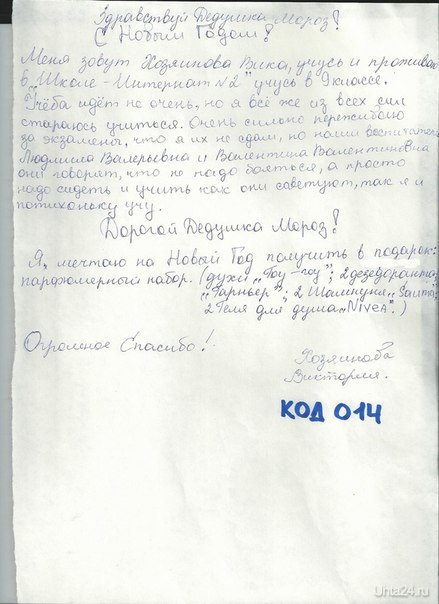 Здравствуй Дедушка Мороз!
С Новым Годом!
Меня зовут Хозяинова Вика, учусь и проживаю
в "Школе-Интернат №2" учусь в 9 классе.
Учёба идёт не очень, но я всё же из всех сил
стараюсь учиться. Очень сильно переживаю
за экзамены, что я их не сдам, но наши воспитатели
Людмила Валерьевна и Валентина Валентиновна
они говорят, что не надо бояться, а просто
надо сидеть и учить как они советуют, так я и
потихоньку учу.
Дорогой Дедушка Мороз!
Я, мечтаю на Новый Год получить в подарок:
парфюмерный набор. (духи "Гоу-гоу"; 2 дезедоранта
"Гарньер"; 2 Шампуня "Saumа";
2 Геля для душа "Nivea".)
Огромное Спасибо!
Хозяинова
Виктория.
КОД 014
Uhta24.ru